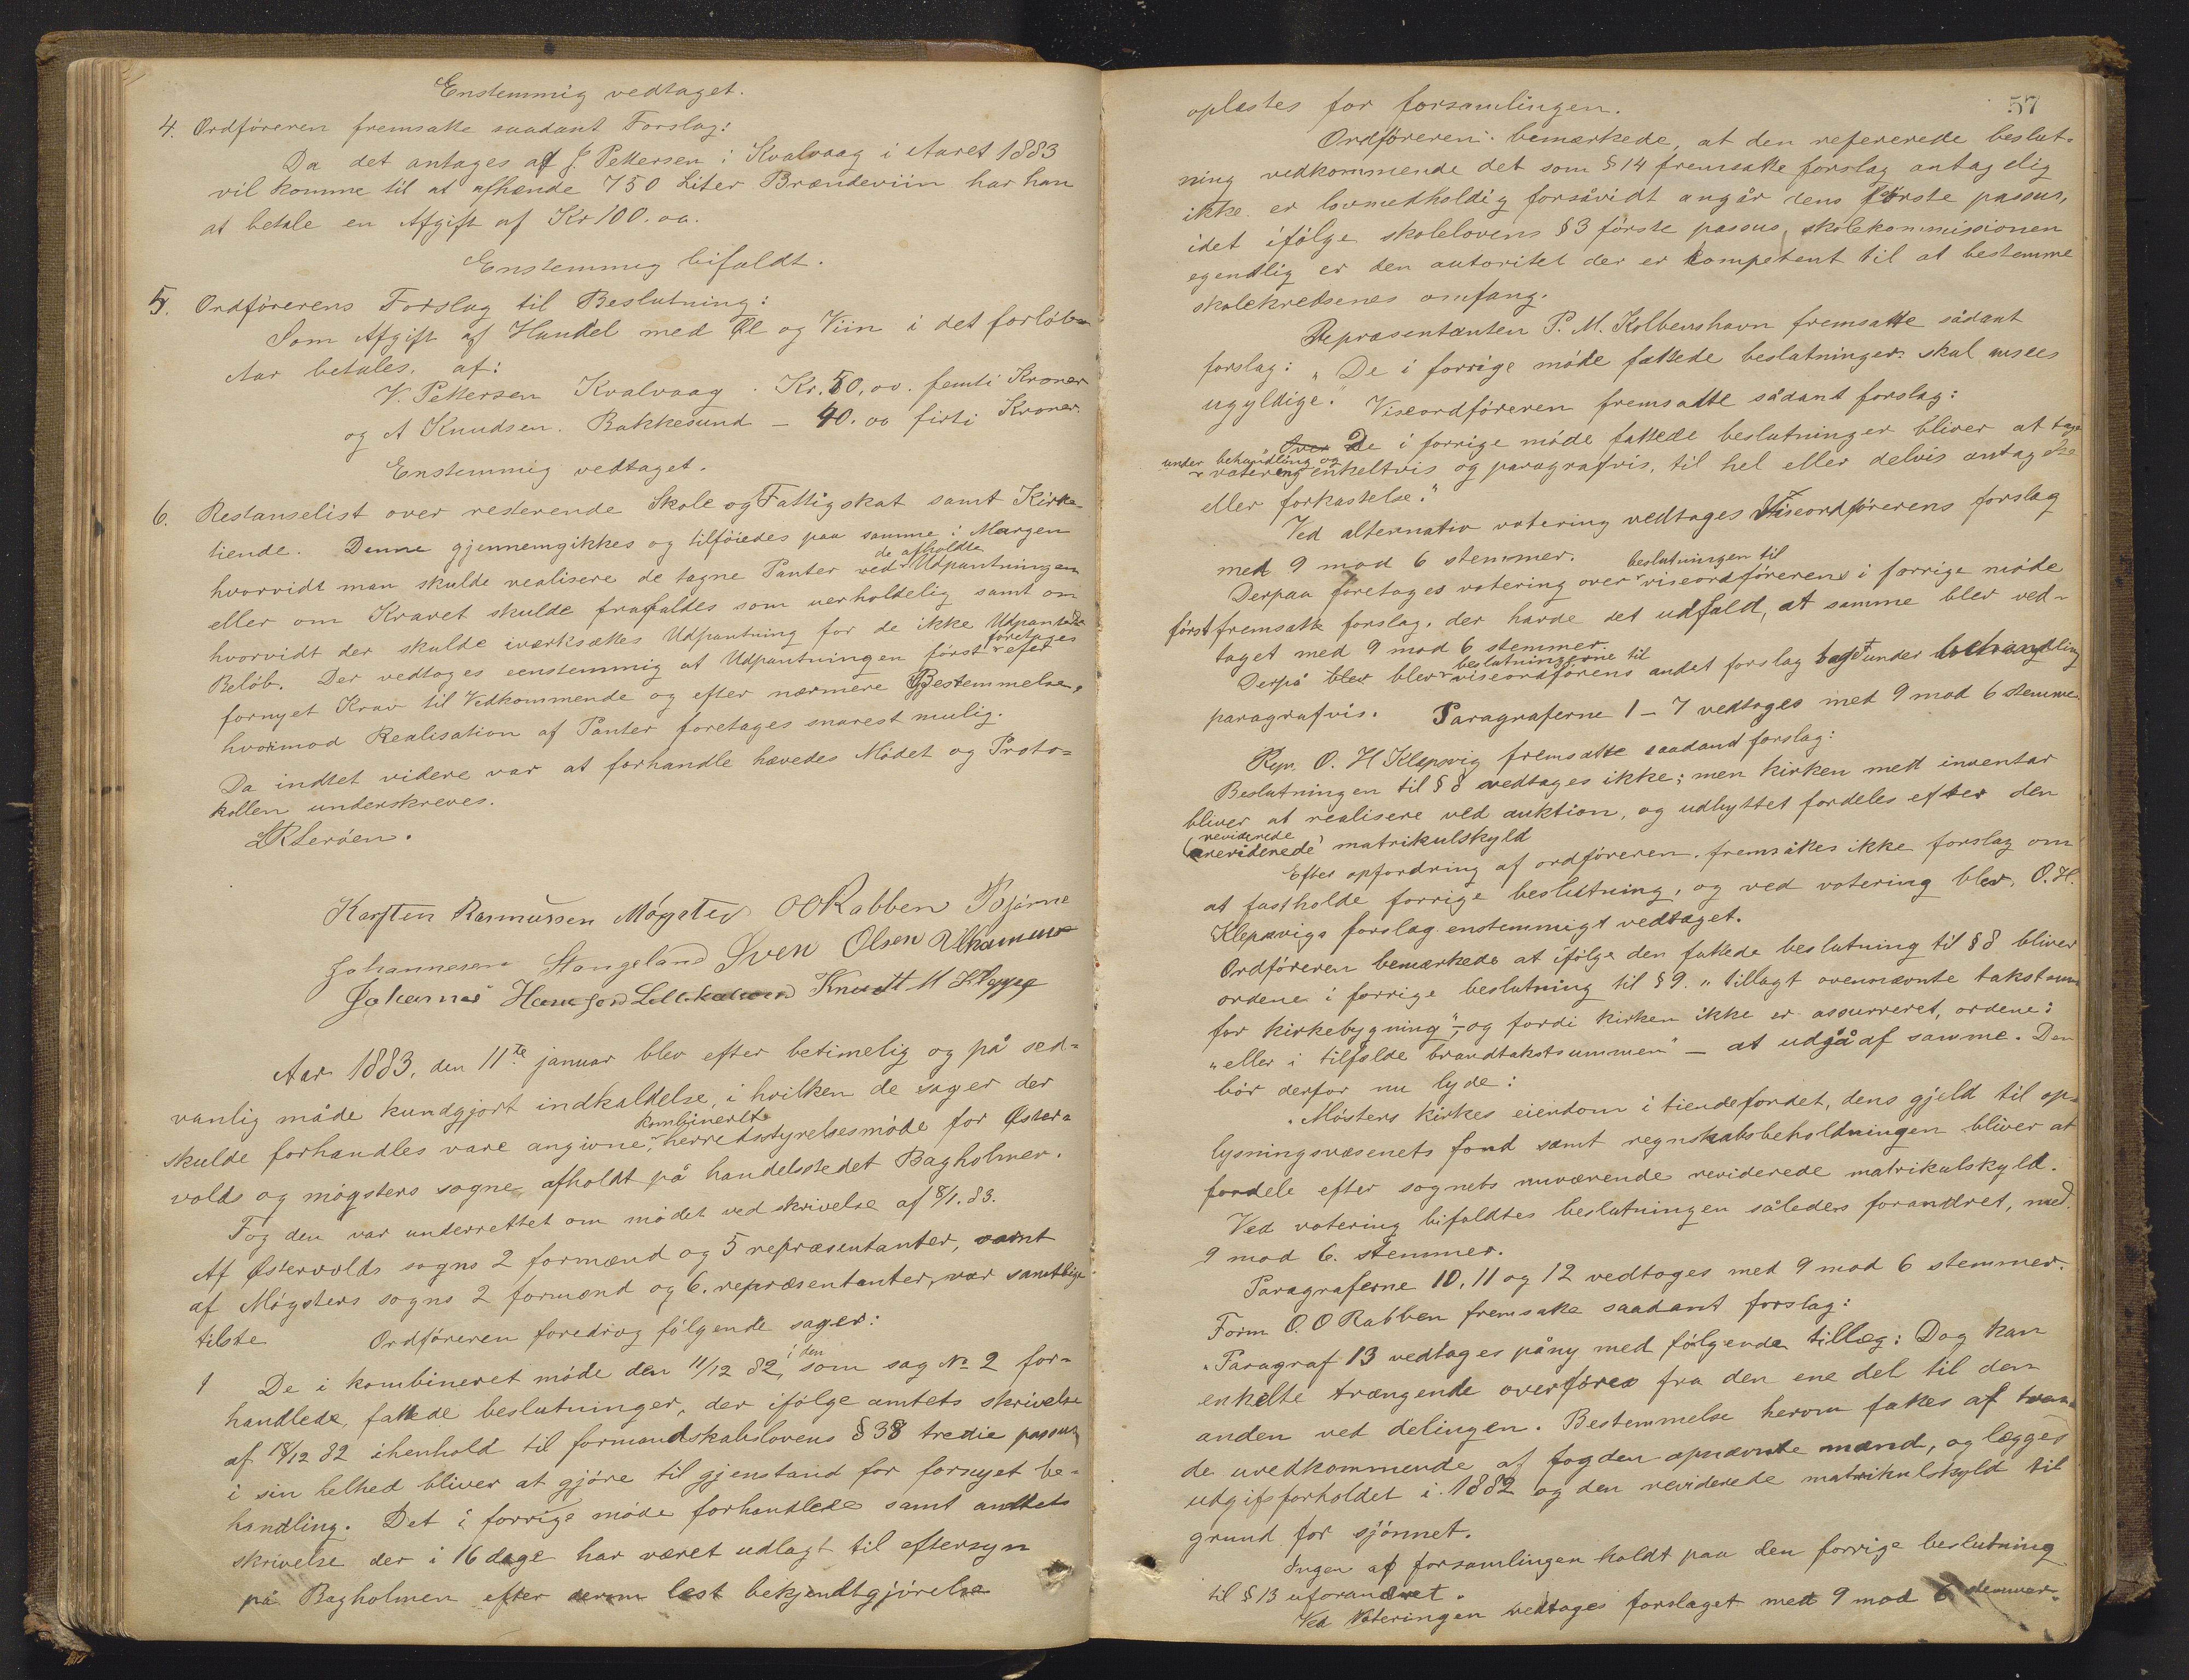 Enstemmig vedtaget.
4. Ordføreren fremsatte saadant Forslag:
Da det antages at J. Pettersen i Kvalvaag i Aaret 1883
vil komme til at afhænde 750 Liter Brændeviin har han
at betale en Afgift af Kr 100.00.
Enstemmig bifaldt.
5. Ordførerens Forslag til Beslutning:
Som Afgift af Handel med Øl og Viin i det forløbne
Aar betales. af:
V. Pettersen Kvalvaag . Kr. 50,00. femti Kroner
og A Knudsen. Bakkesund – 40.00 firti Kroner.
Enstemmig vedtaget.
6. Restanselist over resterende Skole og Fattigskat samt Kirke-
tiende. Denne gjennemgikkes og tilføiedes paa samme i Margen
hvorvidt man skulde realisere de tagne Panter ved de afholdte Udpantninger
eller om Kravet skulde frafaldes som uerholdelig samt om
hvorvidt der skulde iværksættes Udpantning for de ikke Udpantede
Beløb. Der vedtoges eenstemmig at Udpantningen først foretages efter
fornyet Krav til Vedkommende og efter nærmere Bestemmelse,
hvorimod Realisation af Panter foretages snarest mulig.
Da indtet videre var at forhandle hævedes Mødet og Proto-
kollen underskreves.
LR Lerøen.
Karsten Rasmussen Møgster OO Rabben Bjarne
Johannesen Stangeland Sven Olsen
Johannes Knutt M
Aar 1883, den 11te januar blev efter betimelig og på sed-
vanlig måde kundgjort indkaldelse, i hvilken de sager der
skulde forhandles vare angivne, kombineret herredsstyrelsesmøde for Øster-
volds og møgsters sogne afholdt på handelsstedet Bagholmen.
Fogden var underrettet om mødet ved skrivelse af 8/1. 83.
Af Østervolds sogns 2 formænd og 5 repræsentanter, samt
af Møgsters sogns 2 formænd og 6. repræsentanter, var samtlige
tilste Ordføreren foredrog følgende sager:
1 De i kombineret møde den 11/12 82, i den som sag No 2 for-
handlede, fattede beslutninger, der ifølge amtets skrivelse
af 18/12 82 ihenhold til formandskabslovens § 38 tredie passus
i sin helhed bliver at gjøre til gjenstand for fornyet be-
handling. Det i forrige møde forhandlede samt amtets
skrivelse der i 16 dage har været udlagt til eftersyn
på Bagholmen efter derom læst bekjendtgjørelse
57
oplæstes for forsamlingen.
Ordføreren bemærkede, at den refererede beslut-
ning vedkommende det som § 14 fremsatte forslag antagelig
ikke er lovmedholdig forsåvidt angår dens første passus,
idet ifølge skolelovens § 3 første passus, skolekommissionen
egendtlig er den autoritet der er kompetent til at bestemme
skolekredsenes omfang.
Repræsentanten P. M. Kolbenshavn fremsatte sådant
forslag: „De i forrige møde fattede beslutninger skal ansees
ugyldige." Viseordføreren fremsatte sådant forslag:
„Over De i forrige møde fattede beslutninger bliver at tage
under behandling og votering enkeltvis og paragrafvis, til hel eller delvis antagelse
eller forkastelse."
Ved alternativ votering vedtages Viseordførerens forslag
med 9 mod 6 stemmer.
Derpaa foretages votering over beslutningen til viseordførerens i forrige møde
først fremsatte forslag, der havde det udfald, at samme blev ved-
taget med 9 mod 6 stemmer.
Derpå blev blev beslutningerne til viseordførens andet forslag taget under behandling
paragrafvis. Paragraferne 1 – 7 vedtoges med 9 mod 6 stemmer
Repr. O. H Klepsvig fremsatte saadand forslag:
Beslutningen til § 8 vedtages ikke; men kirken med inventar
bliver at realisere ved auktion, og udbyttet fordeles efter den
(reviderede) ureviderede matrikulskyld
Efter opfordring af ordføreren, fremsattes ikke forslag om
at fastholde forrige beslutning, og ved votering blev O. H.
Klepsvigs forslag enstemmigt vedtaget.
Ordføreren bemærkede at ifølge den fattede beslutning til § 8 bliver
ordene i forrige beslutning til § 9. „tillagt ovennævnte takstsum
for kirkebygning" – og fordi kirken ikke er assurreret, ordene:
„eller i tilfælde brandtakstsummen" – at udgå af samme. Den
bør derfor nu lyde:
„Møsters kirkes eiendom i tiendefordet, dens gjeld til op-
lysningsvæsenets fond samt regnskabsbeholdningen bliver at
fordele efter sognets nuværende reviderede matrikulskyld.
Ved votering bifaldtes beslutningen således forandret, med
9 mod 6. stemmer.
Paragraferne 10, 11 og 12 vedtoges med 9 mod 6 stemmer.
Form O. O Rabben fremsatte saadant forslag:
„Paragraf 13 vedtages påny med følgende tillæg: Dog kan
enkelte trængende overføres fra den ene del til den
anden ved delingen. Bestemmelse herom fattes af tvende
de uvedkommende af fogden opnævnte mænd, og lægges
udgifsforholdet i 1882 og den reviderede matrikulskyld til
grund for sjønnet.
Ingen af forsamlingen holdt paa den forrige beslutning
til § 13 uforandret.
Ved Voteringen vedtages forslaget med 9 mod 6 stemmer.